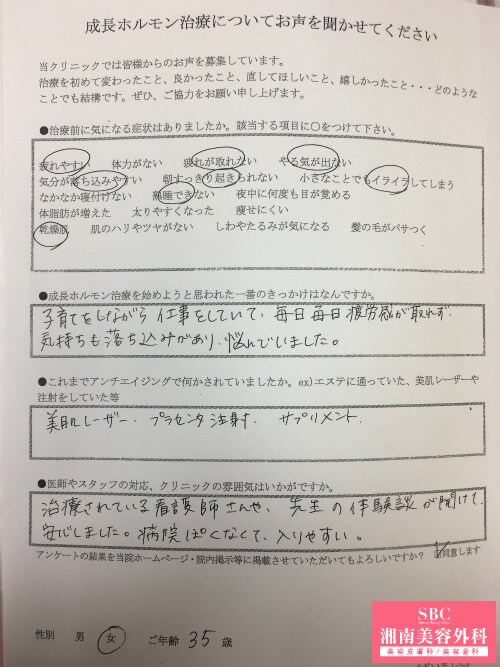 成長ホルモン治療についてお声を聞かせてください
当クリニックでは皆様からのお声を募集しています。
治療を初めて変わったこと、良かったこと、直してほしいこと、嬉しかったこと・・・どのような
ことでも結構です。ぜひ、ご協力をお願い申し上げます。
●治療前に気になる症状はありましたか。該当する項目に○をつけて下さい。
疲れやすい 体力がない 疲れが取れない やる気が出ない
気分が落ち込みやすい 朝すっきり起きられない 小さなことでもイライラしてしまう
なかなか寝付けない 熟睡できない 夜中に何度も目が覚める
体脂肪が増えた 太りやすくなった 痩せにくい
乾燥肌 肌のハリやツヤがない しわやたるみが気になる 髪の毛がパサつく
●成長ホルモン治療を始めようと思われた一番のきっかけはなんですか。
子育てをしながら仕事をしていて、毎日毎日疲労感が取れず
気持ちも落ち込みがあり、悩んでいました。
●これまでアンチエイジングで何かされていましたか。ex)エステに通っていた、美肌レーザーや
注射をしていた等
美肌レーザー、プラセンタ注射、サプリメント
●医師やスタッフの対応、クリニックの雰囲気はいかがですか。
治療されている看護師さんや、先生の体験談が聞けて
安心しました。病院ぽくなくて、入りやすい。
アンケートの結果を当院ホームページ・院内掲示等に掲載させていただいてもよろしいですか？ ☑同意します
性別 男 女 ご年齢 35 歳
SBC
湘南美容外科
美容皮膚科/美容歯科